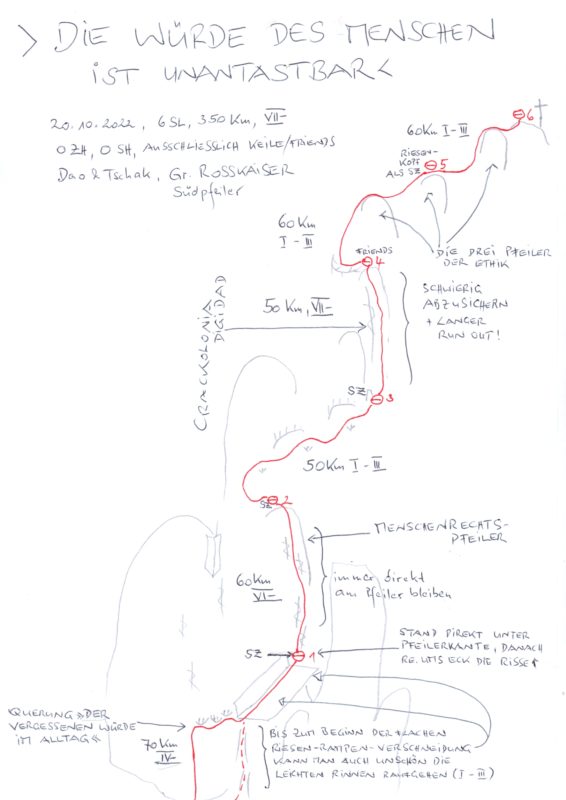 > DIE WÜRDE DES MENSCHEN
IST UNANTASTBAR <
20.10.2022, 6 SL, 350 Km, VII-
0 ZH, 0 SH, AUSSCHLIESSLICH KEILE/FRIENDS
Dao & Tschak, Gr. ROSSKAISER
Südpfeiler
6
60 Km I-III
RIESEN-
KOPF
ALS SZ
5
60 Km
I-III
FRIENDS
4
DIE DREI PFEILER
DER ETHIK
CRACKOLONIA
DIGIDAD
50 Km, VII-
SCHWIERIG
ABZUSICHERN
+ LANGER
RUN OUT!
SZ
3
50 Km I-III
SZ
2
MENSCHENRECHTS-
PFEILER
60 Km
VI-
immer direkt
am Pfeiler bleiben
SZ
1
STAND DIREKT UNTER
PFEILERKANTE, DANACH
RE. UMS ECK DIE RISSE
QUERUNG »DER
VERGESSENEN WÜRDE
IM ALLTAG«
70 Km
IV-
BIS ZUM BEGINN DER FLACHEN
RIESEN-RAMPEN-VERSCHNEIDUNG
KANN MAN AUCH UNSCHÖN DIE
LEICHTEN RINNEN RAUFGEHEN (I-III)